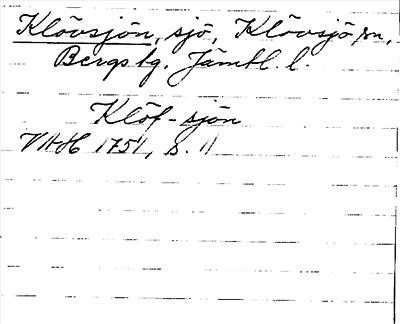 Klövsjön, sjö, Klövsjö sn,
Bergs tg. Jämtl. l.
Klöf-sjön
VAH 1751, s. 11